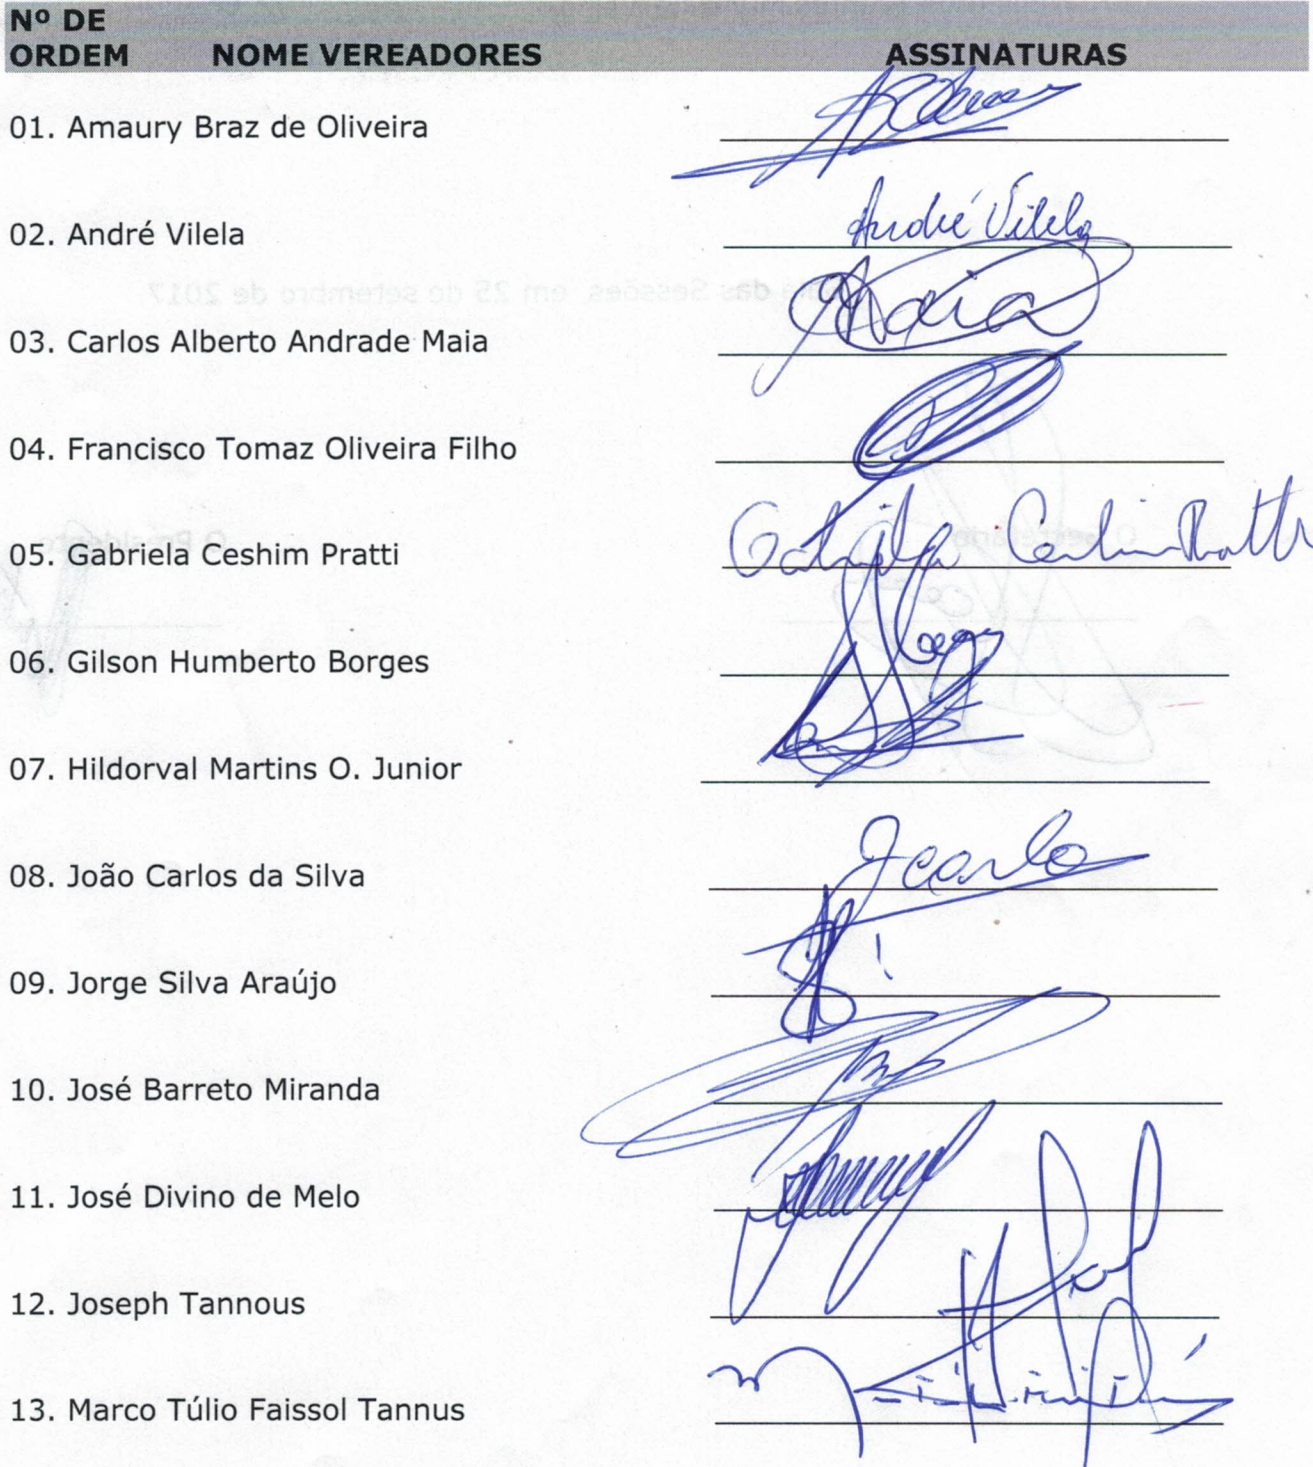 Nº DE
ORDEM NOME VEREADORES ASSINATURAS
01. Amaury Braz de Oliveira
02. André Vilela André Vilela
03. Carlos Alberto Andrade Maia Maia
04. Francisco Tomaz Oliveira Filho
05. Gabriela Ceshim Pratti Gabriela Ceshim Pratti
06. Gilson Humberto Borges
07. Hildorval Martins O. Junior
08. João Carlos da Silva Jcarlo
09. Jorge Silva Araújo
10. José Barreto Miranda
11. José Divino de Melo
12. Joseph Tannous
13. Marco Túlio Faissol Tannus